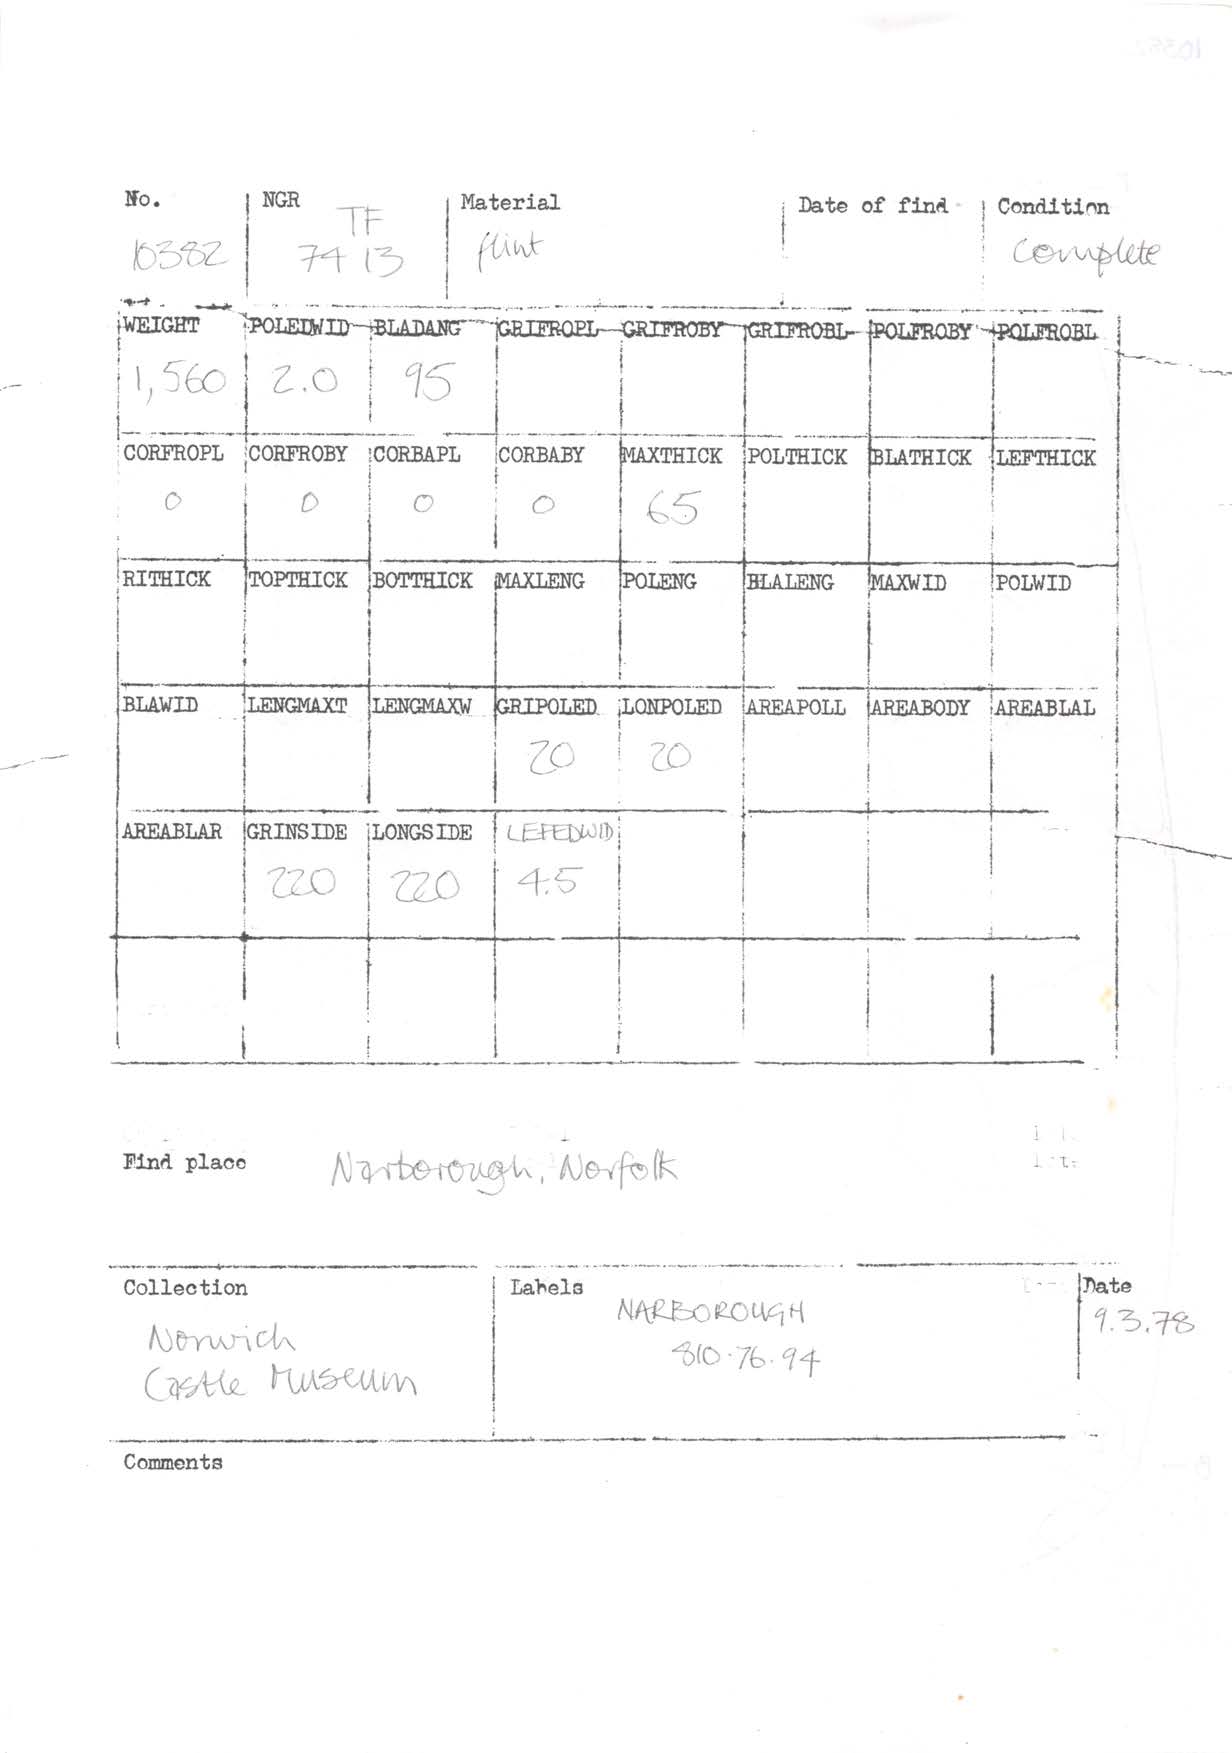 No. NGR Material Date of find Condition
TF
10382 74 13 flint complete
WEIGHT POLEDWID BLADANG GRIFROPL GRIFROBY GRIFROBL POLFROBY POLFROBL
1,560 2.0 95
CORFROPL CORFROBY CORBAPL CORBABY MAXTHICK POLTHICK BLATHICK LEFTHICK
0 0 0 0 65
RITHICK TOPTHICK BOTTHICK MAXLENG POLENG BLALENG MAXWID POLWID
BLAWID LENGMAXT LENGMAXW GRIPOLED LONPOLED AREAPOLL AREABODY AREABLAL
20 20
AREABLAR GRINSIDE LONGSIDE LEFEDWID
220 220 4.5
Find place Narborough, Norfolk
Collection Labels Date
NARBOROUGH 9.3.78
Norwich 810.76.94
Castle Museum
Comments